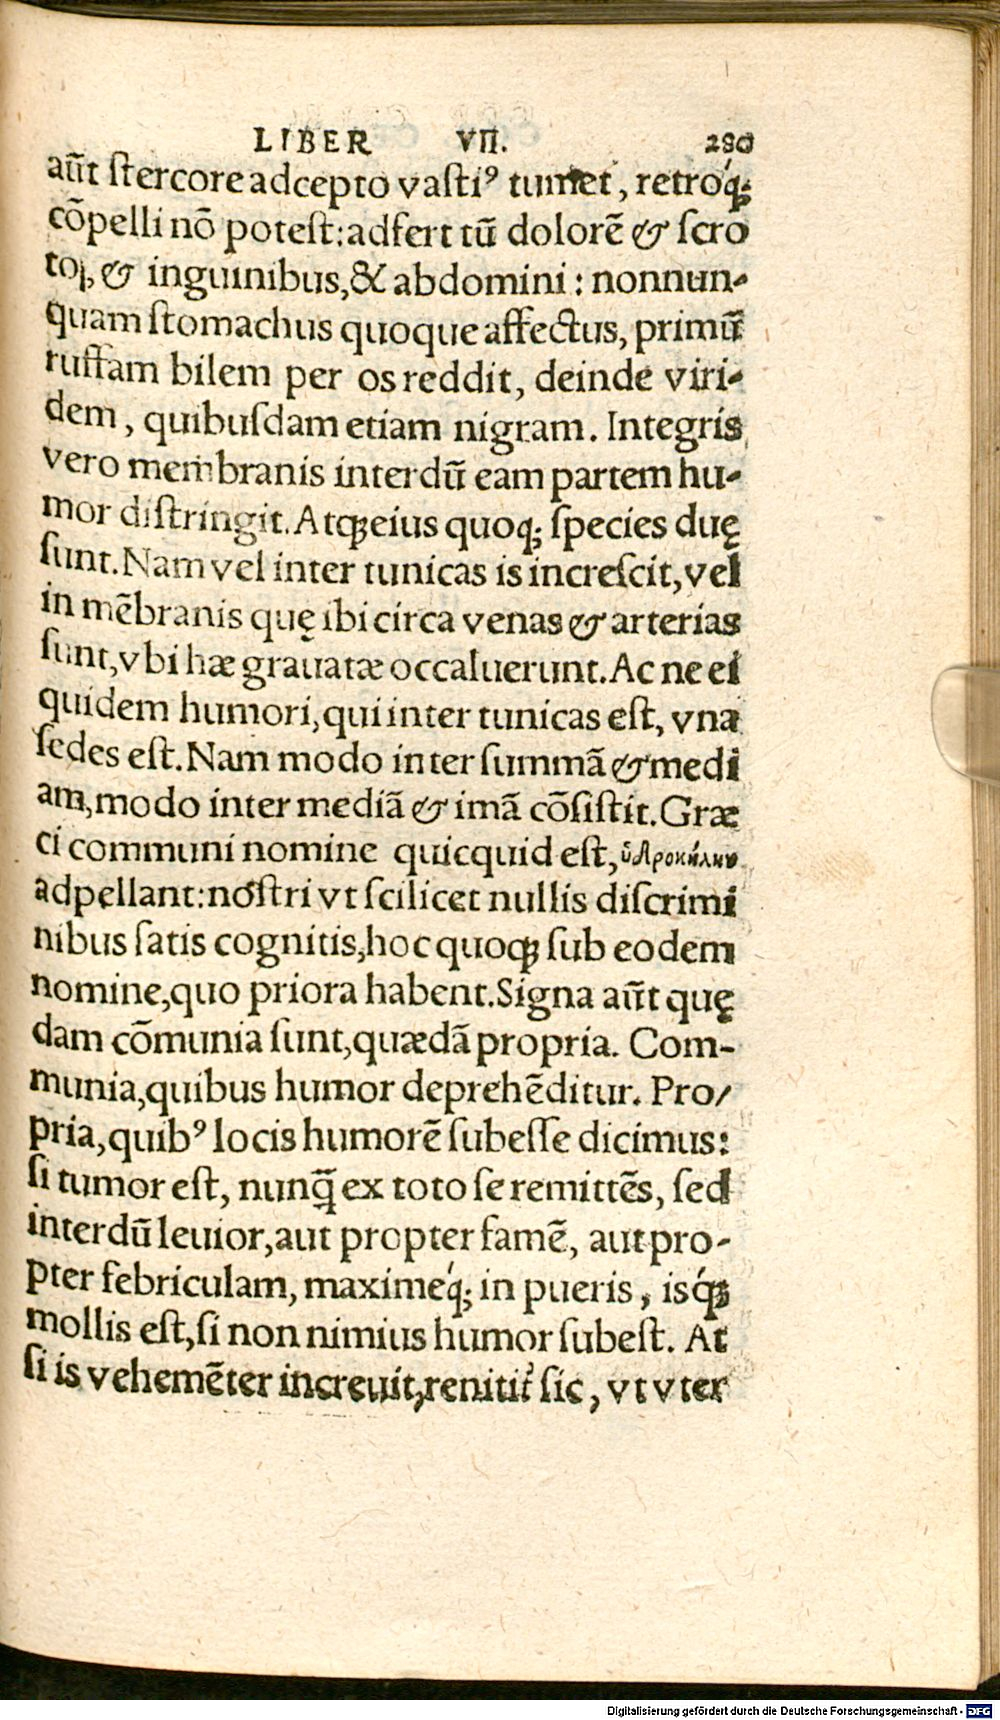 LIBER VII. 280
aūt ſtercore adcepto vaſti⁹ tumet, retroq́;
cōpelli nō poteſt: adfert tū dolorē & ſcro
to, & inguinibus, & abdomini: nonnun-
quam ſtomachus quoque affectus, primū
ruffam bilem per os reddit, deinde viri-
dem, quibuſdam etiam nigram. Integris
vero membranis interdū eam partem hu-
mor diſtringit. Atqꝫ eius quoq; ſpecies duę
ſunt. Nam vel inter tunicas is increſcit, vel
in mēbranis quę ibi circa venas & arterias
ſunt, vbi hæ grauatæ occaluerunt. Ac ne ei
quidem humori, qui inter tunicas eſt, vna
ſedes eſt. Nam modo inter ſummā & medi
am, modo inter mediā & imā cōſiſtit. Græ
ci communi nomine quicquid eſt, ὑδροκήλην
adpellant: noſtri vt ſcilicet nullis diſcrimi
nibus ſatis cognitis, hoc quoqꝫ ſub eodem
nomine, quo priora habent. Signa aūt quę
dam cōmunia ſunt, quædā propria. Com-
munia, quibus humor deprehēditur. Pro/
pria, quib⁹ locis humorē ſubeſſe dicimus:
ſi tumor eſt, nunq̄ ex toto ſe remittēs, ſed
interdū leuior, aut propter famē, aut pro-
pter febriculam, maximeq́; in pueris, isq́ꝫ
mollis eſt, ſi non nimius humor ſubeſt. At
ſi is vehemēter increuit, renitit᷑ ſic, vt vter
Digitalisierung gefördert durch die Deutsche Forschungsgemeinschaft - DFG